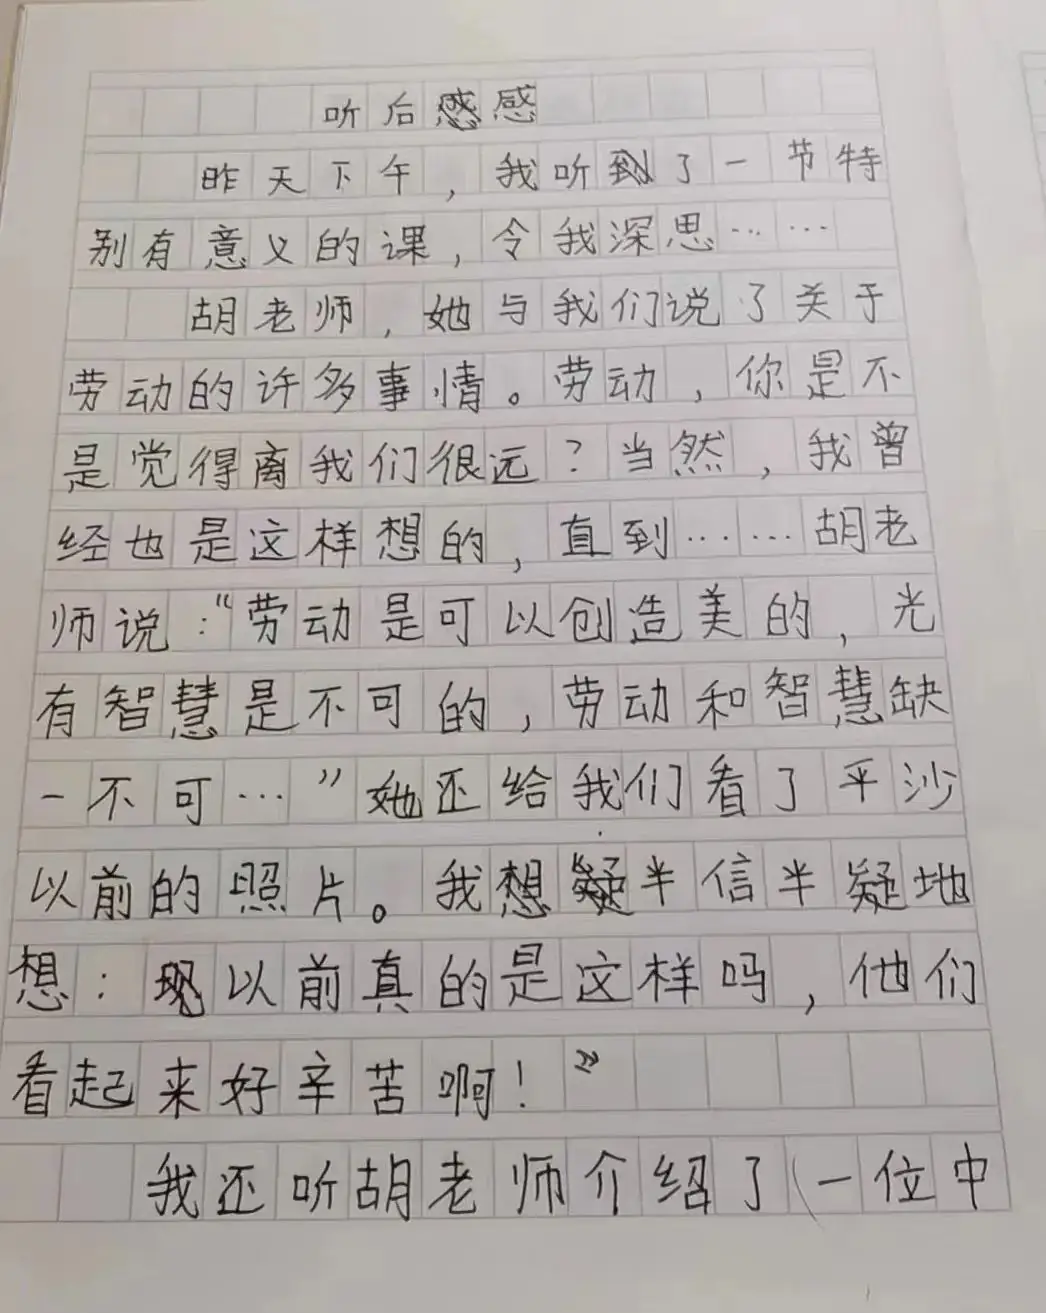 听后感
昨天下午，我听到了一节特
别有意义的课，令我深思……
胡老师，她与我们说了关于
劳动的许多事情。劳动，你是不
是觉得离我们很远？当然，我曾
经也是这样想的，直到……胡老
师说：“劳动是可以创造美的，光
有智慧是不可的，劳动和智慧缺
一不可…”她还给我们看了平沙
以前的照片。我想半信半疑地
想：以前真的是这样吗，他们
看起来好辛苦啊！”
我还听胡老师介绍了一位中